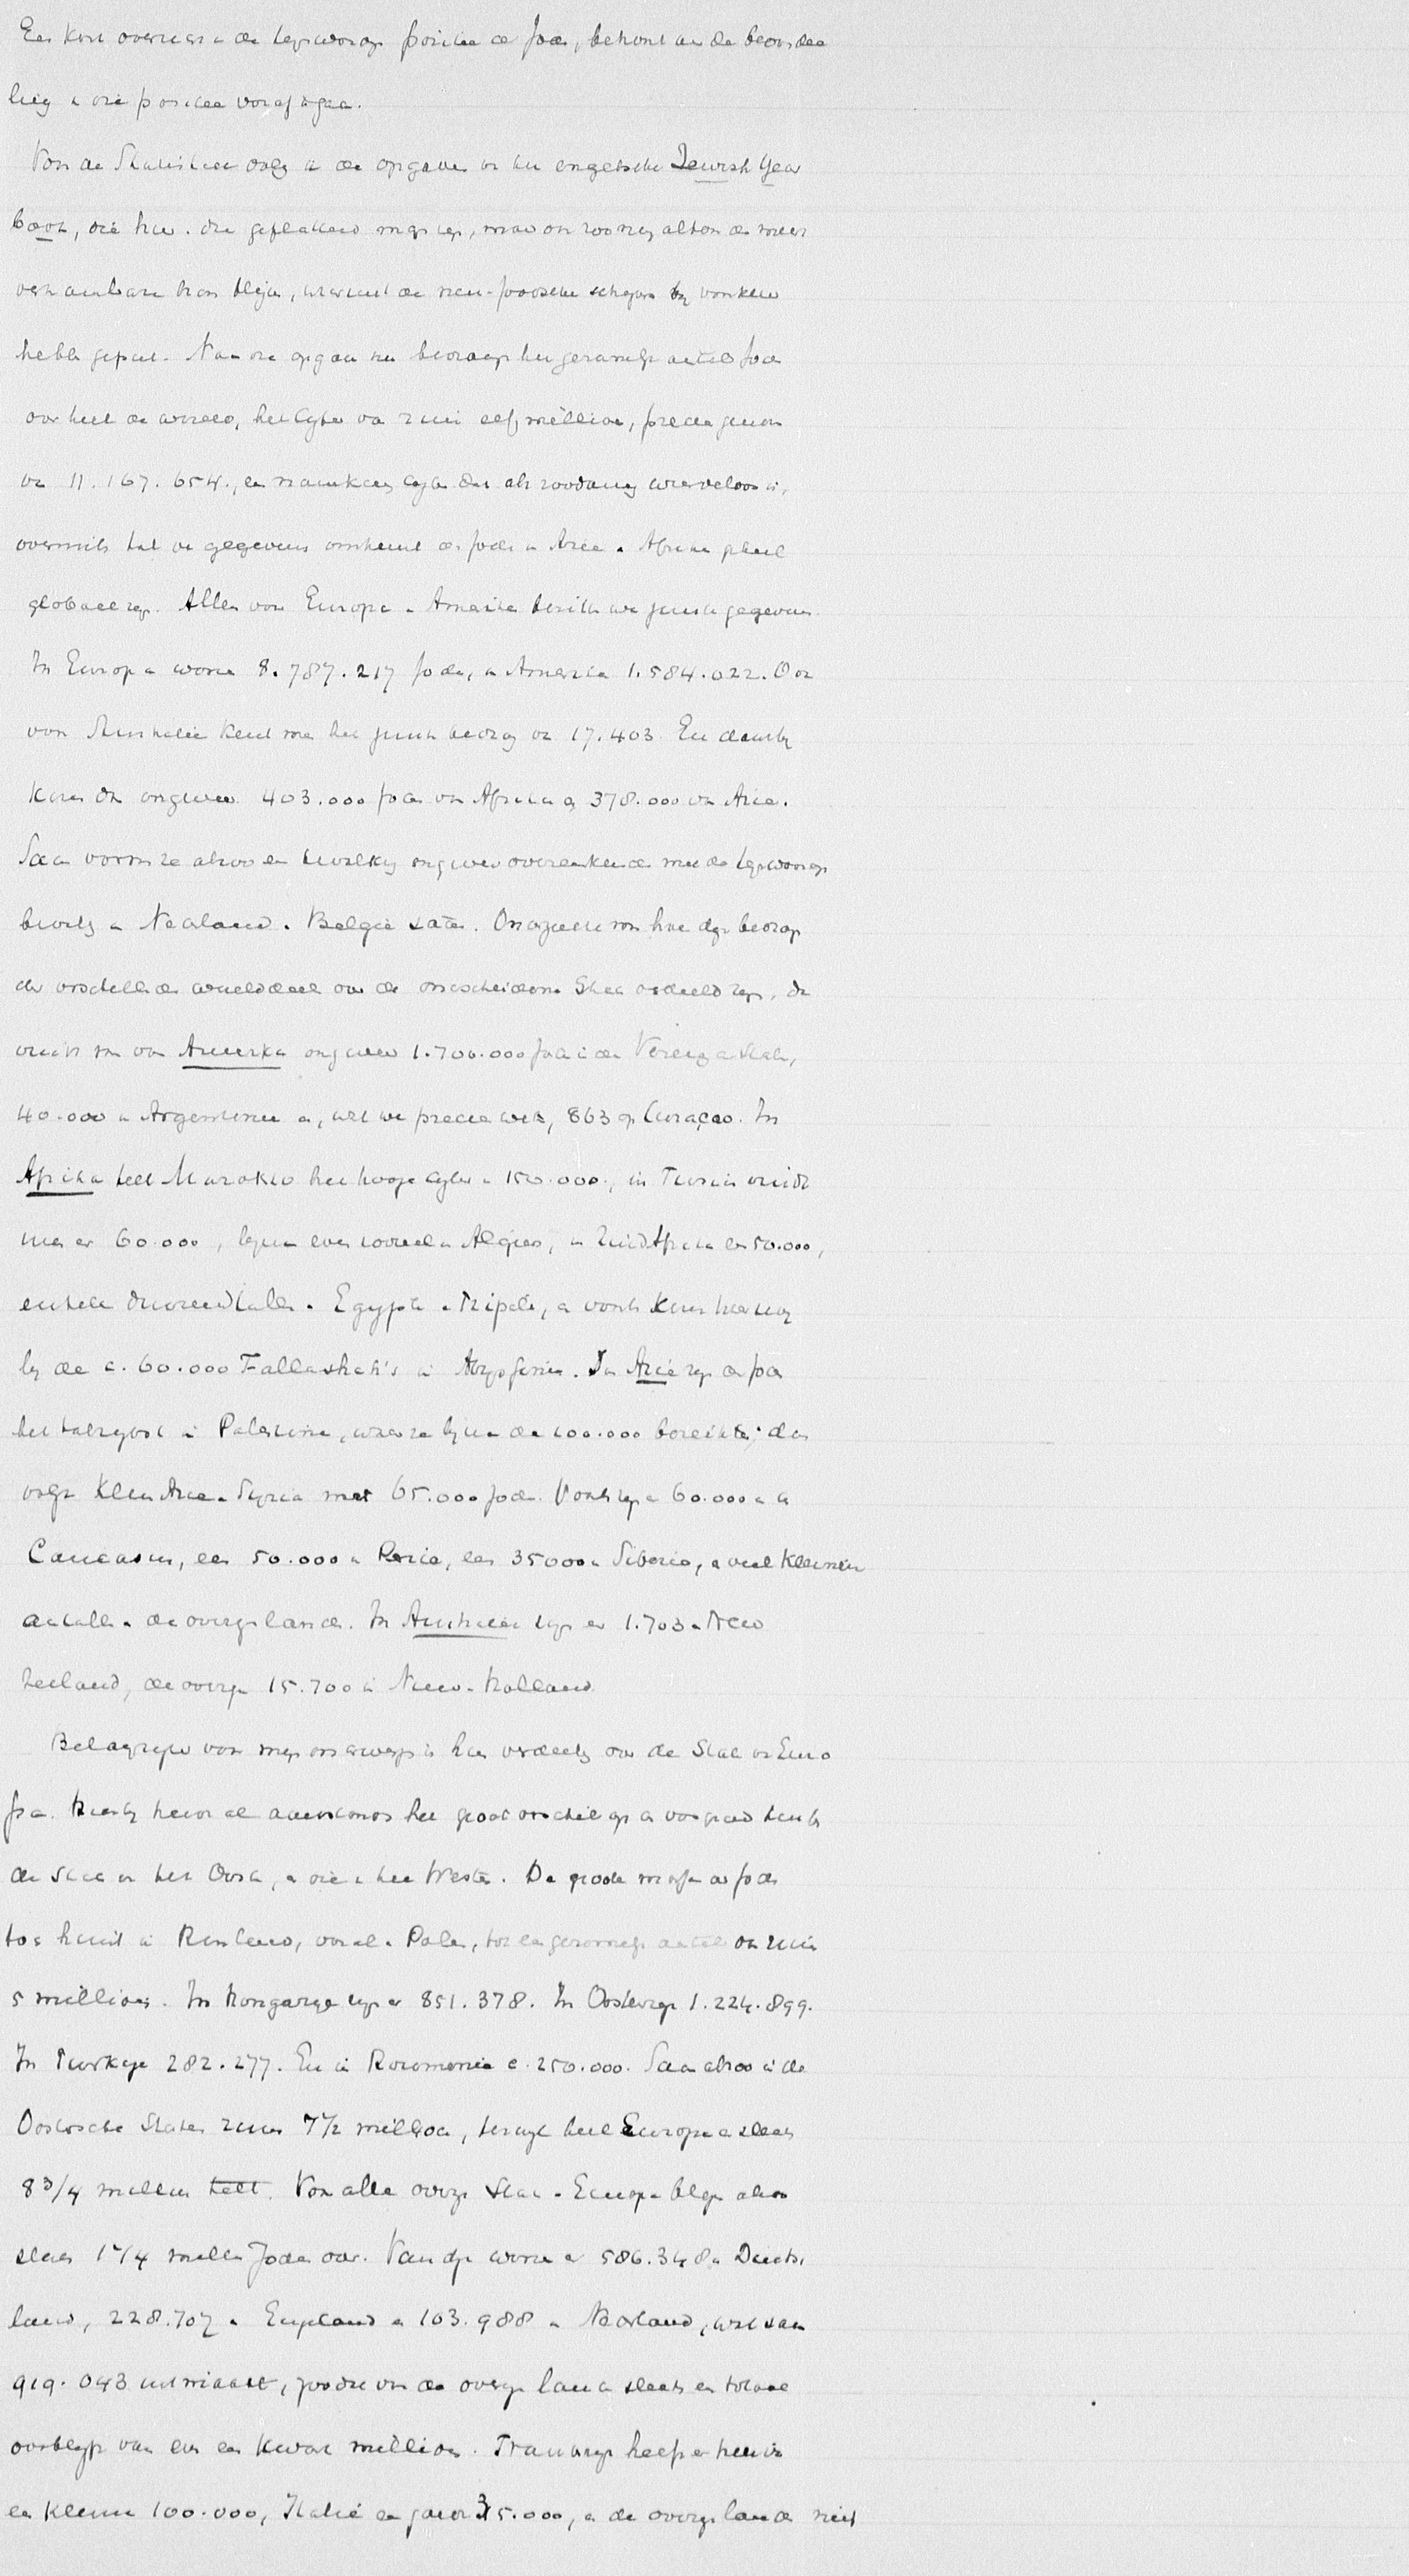 Een kort overzicht van de tegenwoordige positie der Joden, behoort aan de beoordee
ling van die positie vooraf te gaan.
Voor de Statistiek volg ik de opgaven in het engelsche Jewish Year
book, die hier en daar geflatteerd mogen zijn, maar toch nog altoos de meest
vertrouwbare bron blijken, waaruit de niet-Joodsche schrijvers bij voorkeur
hebben geput. Naar die opgaven nu bedraagt het gezamenlijk aantal Joden
over heel de wereld, het cijfer van ruim elf millioen, precies genomen
van 11.167.654., een nauwkeurig cijfer dat als zoodanig waardeloos is,
overmits tal van gegevens omtrent de Joden in Azië en Afrika geheel
globaal zijn. Alleen voor Europa en Amerika bezitten we juiste gegevens.
In Europa wonen 8.787.217 Joden, in Amerika 1.584.022. Ook
voor Australië kent men het juiste bedrag van 17.403. En daarbij
komen dan ongeveer 403.000 Joden van Afrika en 378.000 van Azië.
Saam vormen ze alzoo een bevolking ongeveer overeenkomende met de tegenwoordige
bevolking van Nederland en België saam. Onderzoekt men hoe dit bedrag
der verschillende werelddeelen over de onderscheidene Staten verdeeld zijn, dan
vindt men voor Amerika ongeveer 1.700.000 Joden in de Vereenigde Staten,
40.000 in Argentinië en, wat we precies weten, 863 op Curaçao. In
Afrika telt Marokko het hoogste cijfer van 150.000., in Tunis vindt
men er 60.000, bijna even zooveel in Algiers, in Zuid Afrika een 50.000,
enkele duizendtallen in Egypte en Tripoli, en voorts komen hierbij
bij de c. 60.000 Fallashah's in Abyssinië. In Azië zijn de Joden
het talrijkst in Palestina, waar ze bijna de 100.000 bereikten; dan
volgt Klein Azië en Syrië met 65.000 Joden. Voorts zijn er 60.000 in den
Caucasus, een 50.000 in Perzië, een 35000 in Siberië, en veel kleinere
aantallen in de overige landen. In Australië zijn er 1.703 in New
Zeeland, de overige 15.700 in Nieuw-Holland.
Belangrijker voor mijn onderwerp is hun verdeeling over de Staten van Euro
pa. Hierbij treedt al aanstonds het groot verschil op den voorgrond tusschen
de Staten in het Oosten, en die in het Westen. De groote massa der Joden
toch huist in Rusland, vooral in Polen, tot een gezamenlijk aantal van ruim
5 millioen. In Hongarije zijn er 851.378. In Oostenrijk 1.224.899.
In Turkije 282.277. En in Roumenië c. 250.000. Saam alzoo in de
Oostersche Staten ruim 7½ millioen, terwijl heel Europa er slechts
8 3/4 millioen telt. Voor alle overige Staten in Europa blijven alzoo
slechts 1 1/4 millioen Joden over. Van deze wonen er 586.348 in Duitsch
land, 228.707 in Engeland en 103.988 in Nederland, wat saam
919.043 uitmaakt, zoodat voor de overige landen slechts een totaal
overblijft van even een kwart millioen. Frankrijk heeft er hiervan
een kleine 100.000, Italië een goede 35.000, en de overige landen niet